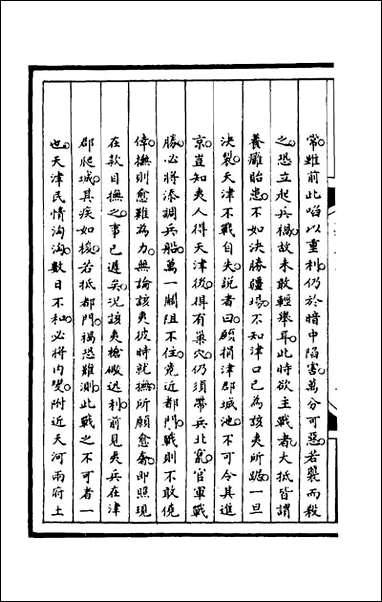 常雖前此啗以重利仍於暗中陷害萬分可惡若襲而殺
之恐立起兵禍故未敢輕舉耳此時欲主戰者大抵皆謂
養癰貽患不如決勝疆場不知津口已為該夷所踞一旦
決裂天津不戰自失說者曰願捐津郡城池不可令其進
京豈知夷人得天津後俱有巢穴仍須帶兵北竄官軍戰
勝必將添調兵船萬一關阻不住竟近都門戰則不敢僥
倖撫則愈難為力無論該夷彼時就撫所願愈奢即照現
在款目撫之事已遲矣況該夷槍礮迅利前見夷兵在津
郡爬城其疾如梭若抵都門禍恐難測此戰之不可者一
也天津民情洶洶數日不和必將內變附近天河兩府土